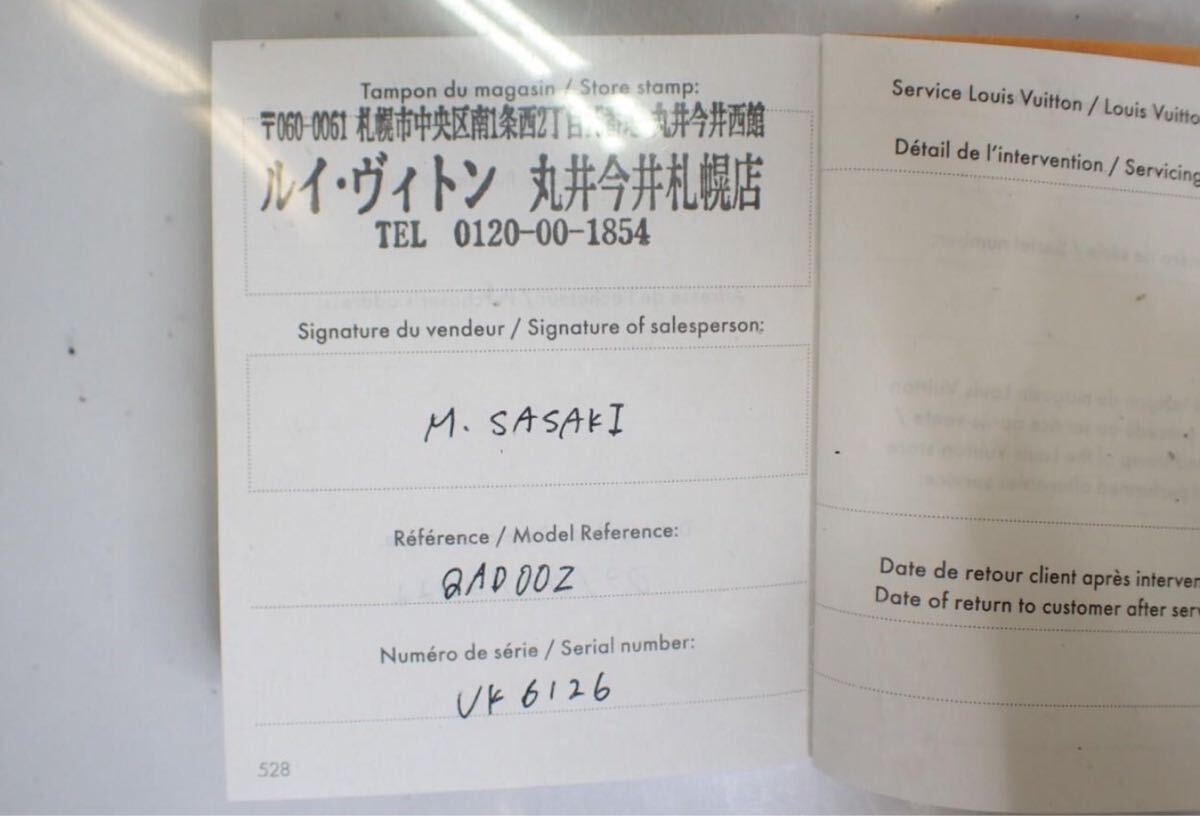 Tampon du magasin / Store stamp:
〒060-0061 札幌市中央区南1条西2丁目 丸井今井西館
ルイ・ヴィトン 丸井今井札幌店
TEL 0120-00-1854
Signature du vendeur / Signature of salesperson:
M. SASAKI
Référence / Model Reference:
QAD00Z
Numéro de série / Serial number:
VK 6126
528
Service Louis Vuitton / Louis Vuitto
Détail de l'intervention / Servicing
Date de retour client après interven
Date of return to customer after serv